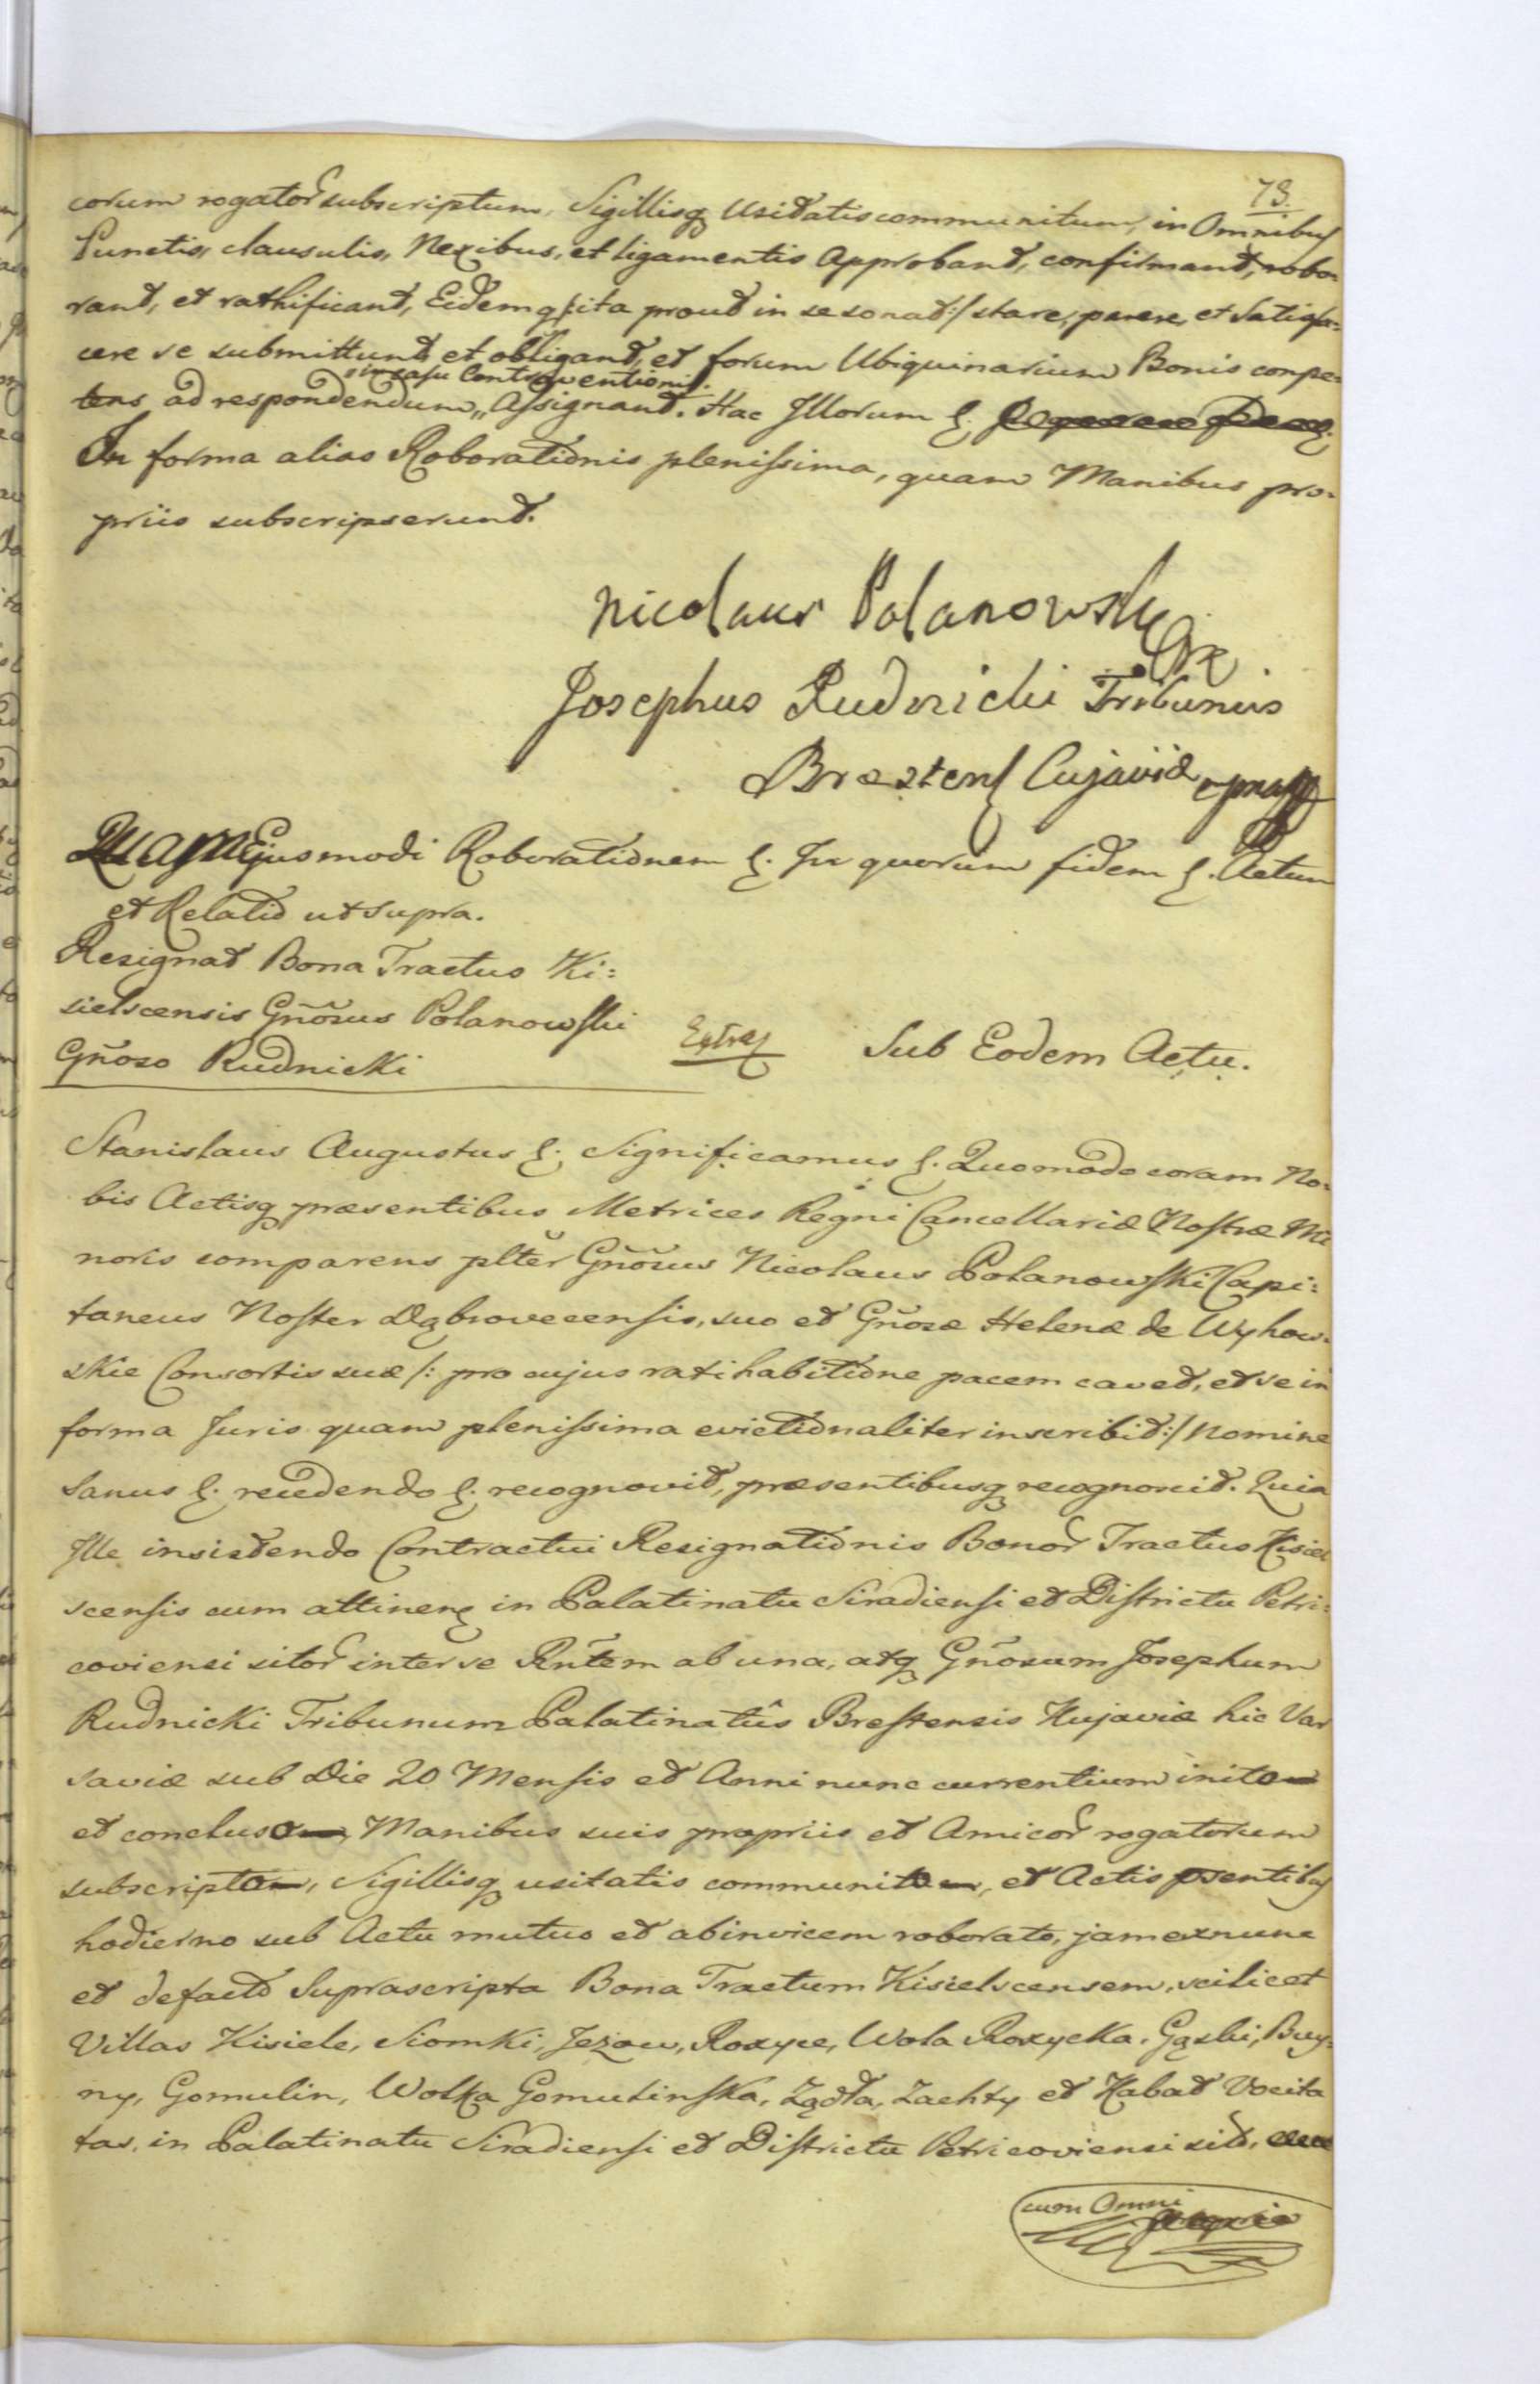 73.
corum rogator subscriptum, Sigillisq Usitatis communitum, in Omnibus
Punctis, clausulis, Nexibus, et ligamentis Approbant, confirmant, robo-
rant, et rathificant, Eidemq /: ita prout in se sonat :/ stare, parere, et Satisfa-
cere se submittunt et obligant, et forum Ubiquinarium Bonis conpe-
"in casu Contraventionis.
tens ad respondendum," Assignant. Hac Illorum §.
In forma alias Roborationis plenissima, quam Manibus pro-
priis subscripserunt.
Nicolaus Polanowski
Josephus Rudnicki Tribunus
Brestens Cujaviæ mpp
Quam Ejusmodi Roborationem §. In quorum fidem §. Actum
et Relatio ut supra.
Resignat Bona Tractus Ki-
sielscensis Gñosus Polanowski
Gñoso Rudnicki
Extra
Sub Eodem Actu.
Stanislaus Augustus §. Significamus §. Quomodo coram No-
bis Actisq præsentibus Metrices Regni Cancellariæ Nostræ Mi
noris comparens plter Gñosus Nicolaus Polanowski Capi-
taneus Noster Dąbrovecensis, suo et Gñosæ Helenæ de Wyhow-
skie Consortis suæ /: pro cujus ratihabitione pacem cavet, et se in
forma Juris quam plenissima evictionaliter inscribit :/ Nomine
Sanus §. recedendo §. recognovit, præsentibusq recognoscit. Quia
Ille insistendo Contractui Resignationis Bonor Tractus Kisiel
scensis cum attinen in Palatinatu Siradiensi et Districtu Petri-
coviensi sitor inter se Rñtem ab una, atq Gñosum Josephum
Rudnicki Tribunum Palatinatûs Brestensis Kujaviæ hic Var
saviæ sub Die 20 Mensis et Anni nunc currentium inito
et concluso, Manibus suis propriis et Amicor rogatorum
subscripto, Sigillisq usitatis communito, et Actis psentibus
hodierno sub Actu mutuo et abinvicem roborato, jam exnunc
et defacto Suprascripta Bona Tractum Kisielscensem, scilicet
Villas Kisiele, Siomki, Jezow, Roxyce, Wola Roxycka, Gąski, Buy-
ny, Gomulin, Wolka Gomulinska, Ządła, Zachty et Kabat Vocita
tas, in Palatinatu Siradiensi et Districtu Petricoviensi sit,
cum Omni